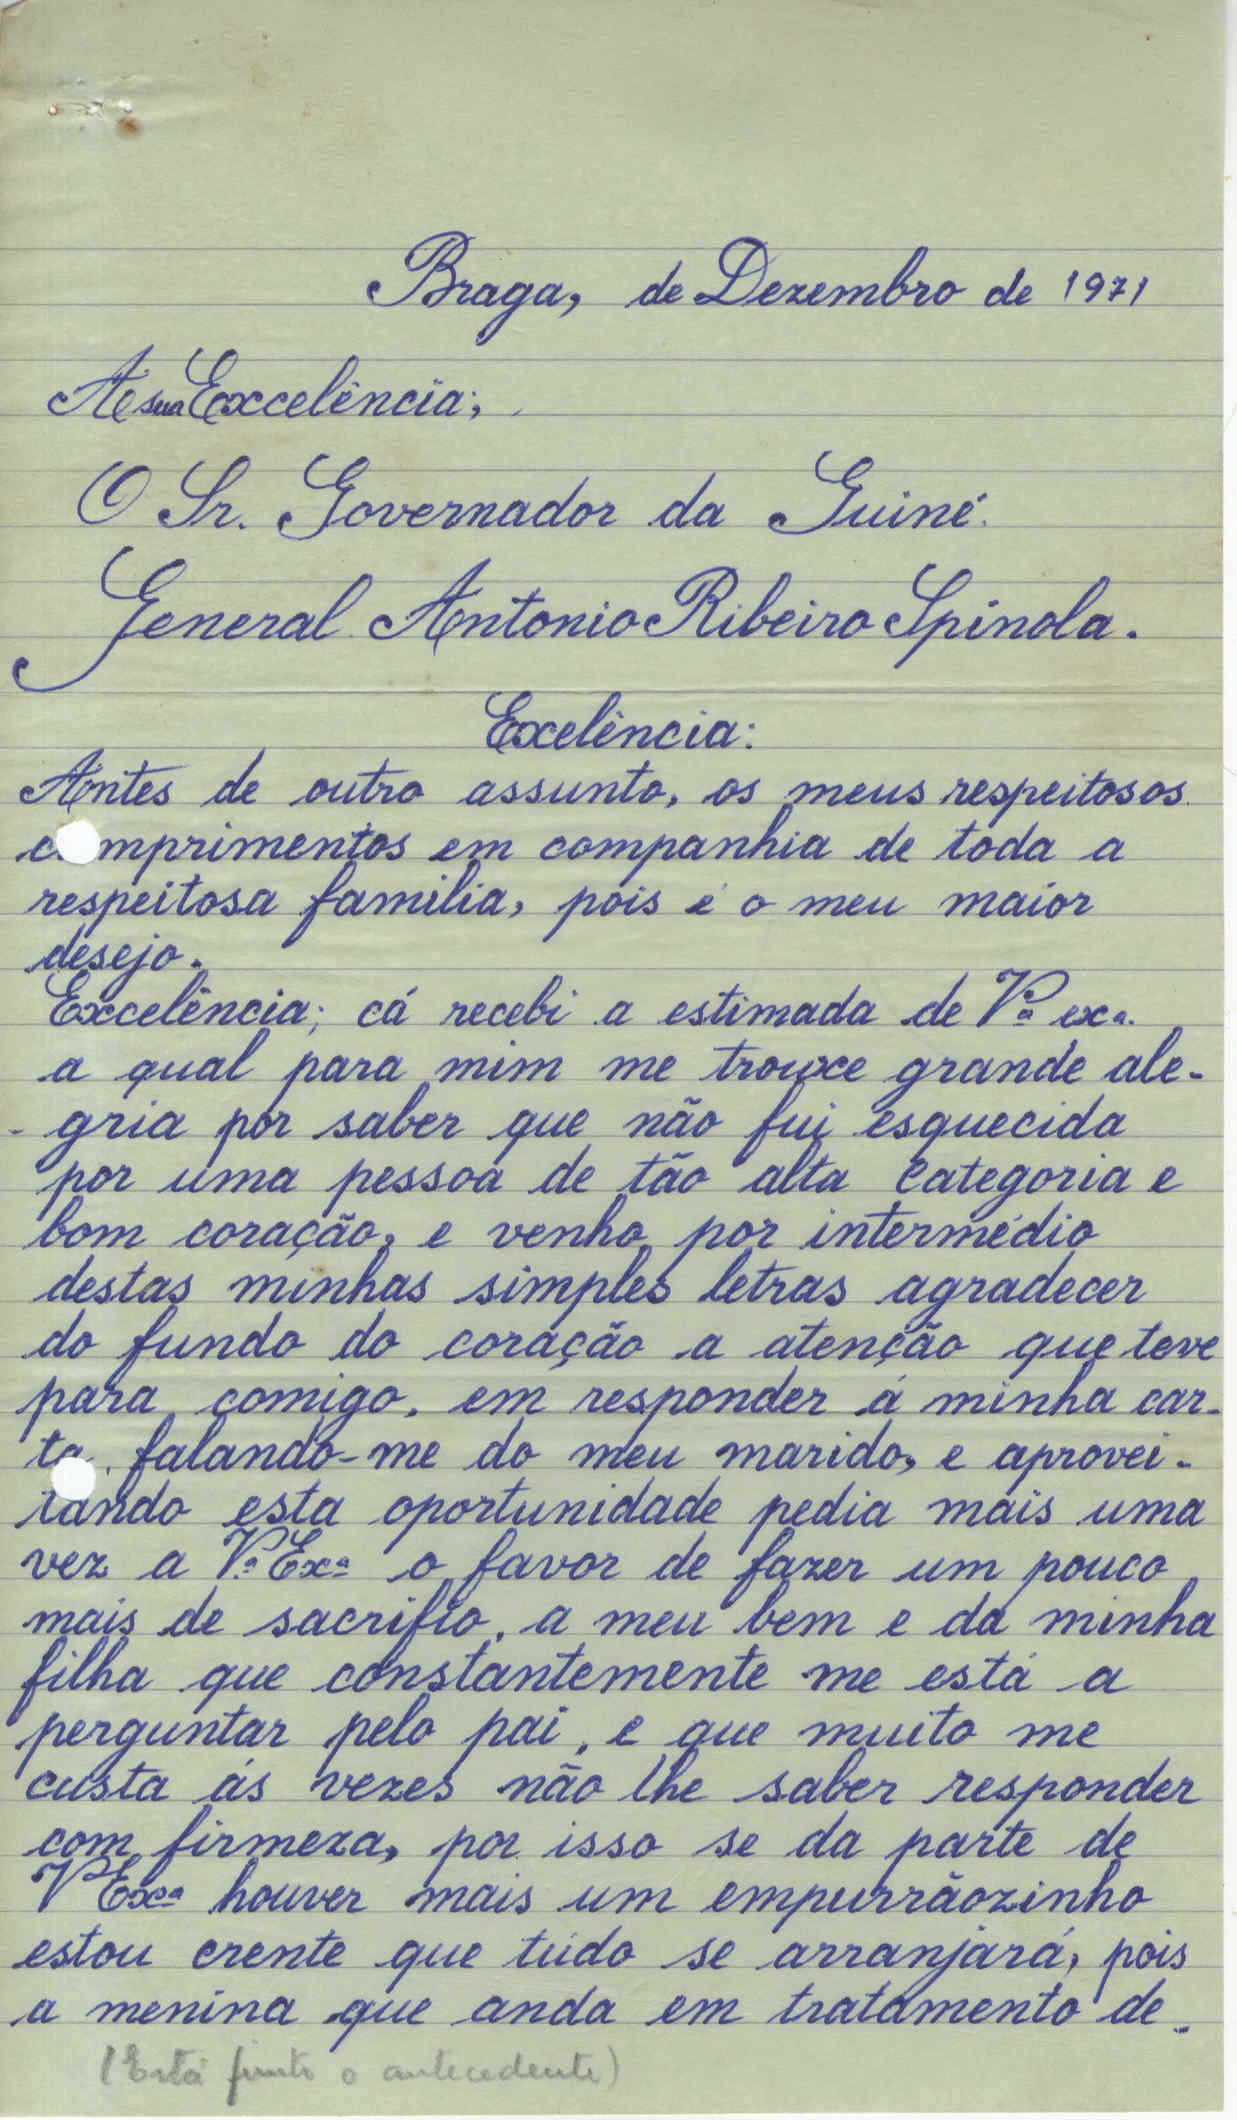 Braga, de Dezembro de 1971
A sua Excelência;
O Sr. Governador da Guiné.
General Antonio Ribeiro Spinola.
Exelência:
Antes de outro assunto, os meus respeitosos
c mprimentos em companhia de toda a
respeitosa familia, pois é o meu maior
desejo.
Excelência; cá recebi a estimada de Vª exª.
a qual para mim me trouxe grande ale-
-gria por saber que não fui esquecida
por uma pessoa de tão alta categoria e
bom coração, e venho por intermédio
destas minhas simples letras agradecer
do fundo do coração a atenção que teve
para comigo, em responder á minha car-
ta, falando-me do meu marido, e aprovei-
tando esta oportunidade pedia mais uma
vez a Vª Exª o favor de fazer um pouco
mais de sacrifio, a meu bem e da minha
filha que constantemente me está a
perguntar pelo pai, e que muito me
custa ás vezes não lhe saber responder
com firmeza, por isso se da parte de
V Exª houver mais um empurrãozinho
estou crente que tudo se arranjará, pois
a menina que anda em tratamento de-
(Está junto o antecedente)